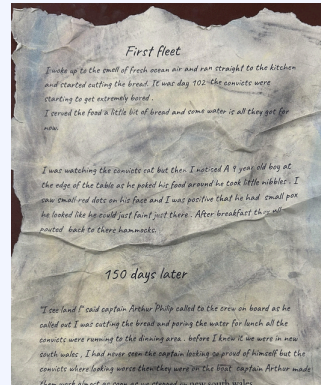 First fleet
I woke up to the smell of fresh ocean air and ran straight to the kitchen
and started cutting the bread. It was day 102 the convicts were
starting to get extremely bored .
I served the food a little bit of bread and some water is all they got for
now.
I was watching the convicts eat but then I notised A 9 year old boy at
the edge of the table as he poked his food around he took little nibbles . I
saw small red dots on his face and I was positive that he had small pox
he looked like he could just faint just there . After breakfast they
pouted back to there hammocks.
150 days later
"I see land !" said captain Arthur Philip called to the crew on board as he
called out I was cutting the bread and poring the water for lunch all the
convicts were running to the dinning area . before I knew it we were in new
south wales , I had never seen the captain looking so proud of himself but the
convicts where looking worse then they were on the boat captain Arthur made
them work almost as soon as we stepped on new south wales